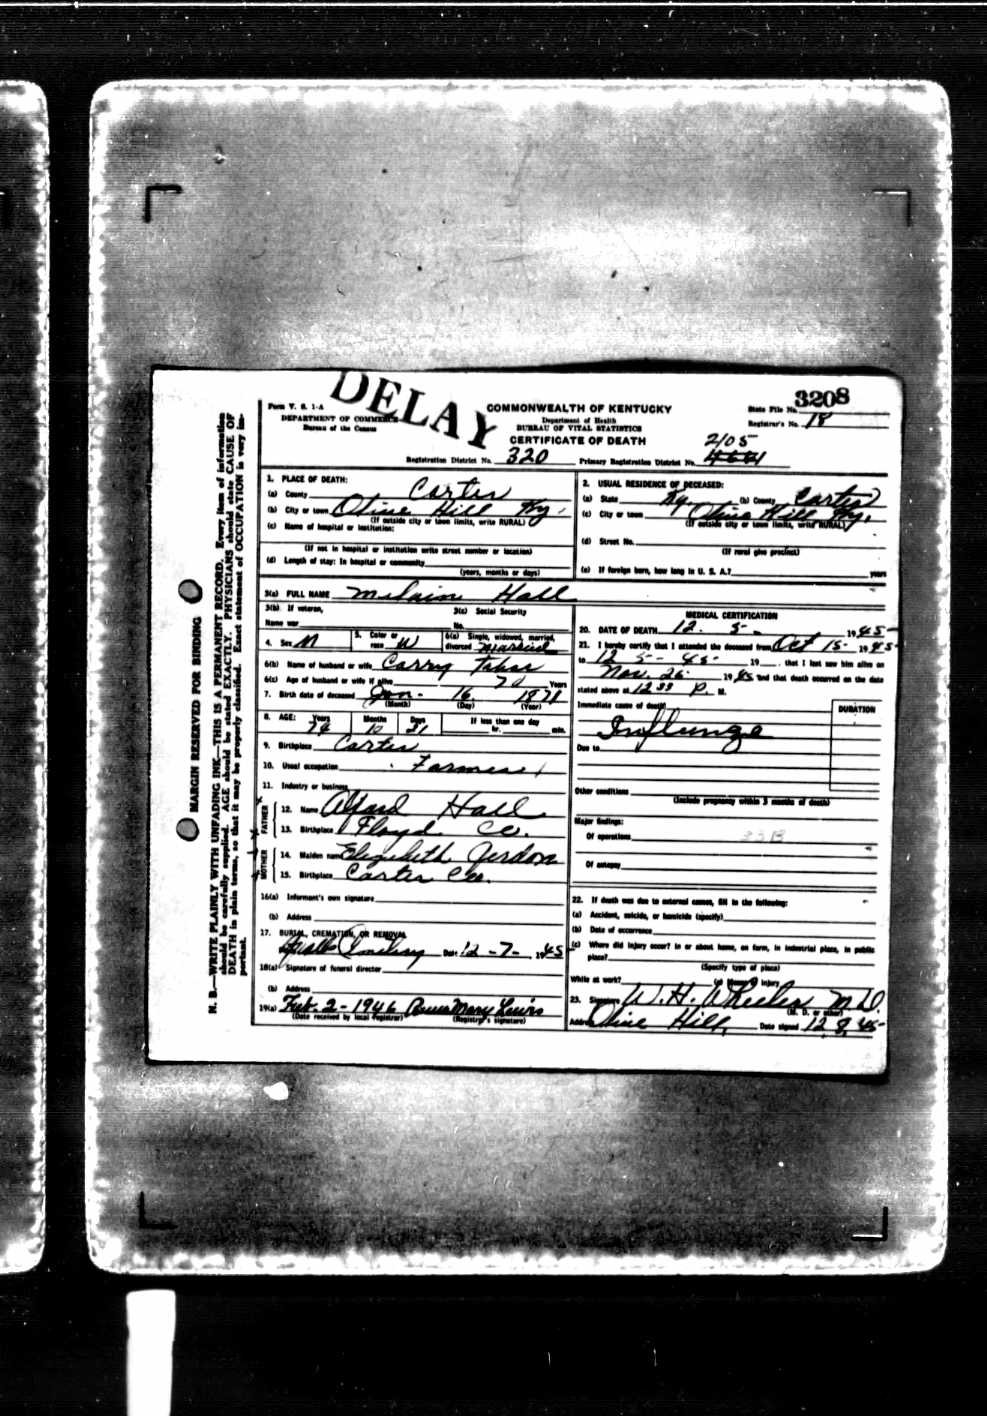 DELAY
3208
Form V. S. 1-A
COMMONWEALTH OF KENTUCKY
State File No.
DEPARTMENT OF COMMERCE
Department of Health
Registrar's No. 18
Bureau of the Census
BUREAU OF VITAL STATISTICS
CERTIFICATE OF DEATH
2105
Registration District No. 320
Primary Registration District No.
1. PLACE OF DEATH:
(a) County Carter
(b) City or town Olive Hill Ky.
(If outside city or town limits, write RURAL)
(c) Name of hospital or institution:
(If not in hospital or institution write street number or location)
(d) Length of stay: In hospital or community
(years, months or days)
2. USUAL RESIDENCE OF DECEASED:
(a) State Ky. (b) County Carter
(c) City or town Olive Hill Ky.
(If outside city or town limits, write RURAL)
(d) Street No.
(If rural give precinct)
(e) If foreign born, how long in U. S. A.? years
3(a) FULL NAME Hall
3(b) If veteran,
Name war
3(c) Social Security
No.
4. Sex M
5. Color or
race W
6(a) Single, widowed, married,
divorced married
6(b) Name of husband or wife
6(c) Age of husband or wife if alive 70 Years
7. Birth date of deceased Jan. 16 1871
(Month) (Day) (Year)
8. AGE: Years Months Days If less than one day
74 10 21 hr. min.
9. Birthplace Carter
10. Usual occupation Farmer
11. Industry or business
FATHER
12. Name Hall
13. Birthplace Floyd Co.
MOTHER
14. Maiden name Elizabeth Jerdon
15. Birthplace Carter Co.
16(a) Informant's own signature
(b) Address
17. BURIAL, CREMATION, OR REMOVAL
Date 12-7- 1945
18(a) Signature of funeral director
(b) Address
19(a) Feb. 2-1946 Mary Lewis
(Date received by local registrar) (Registrar's signature)
MEDICAL CERTIFICATION
20. DATE OF DEATH 12. 5- 1945-
21. I hereby certify that I attended the deceased from Oct 15- 1945-
to 12 5- 45- 19 , that I last saw him alive on
Nov. 26 1945 and that death occurred on the date
stated above at 12 P. M.
Immediate cause of death
DURATION
Influnze
Due to
Other conditions
(Include pregnancy within 3 months of death)
Major findings:
Of operations 33B
Of autopsy
22. If death was due to external causes, fill in the following:
(a) Accident, suicide, or homicide (specify)
(b) Date of occurrence
(c) Where did injury occur? in or about home, on farm, in industrial place, in public
place?
(Specify type of place)
While at work? (e) Means of injury
23. Signature W. H. Wheeler M D.
(M. D. or other)
Address Olive Hill, Date signed 12, 8, 45-
MARGIN RESERVED FOR BINDING
N. B.—WRITE PLAINLY WITH UNFADING INK—THIS IS A PERMANENT RECORD. Every item of information
should be carefully supplied. AGE should be stated EXACTLY. PHYSICIANS should state CAUSE OF
DEATH in plain terms, so that it may be properly classified. Exact statement of OCCUPATION is very im-
portant.